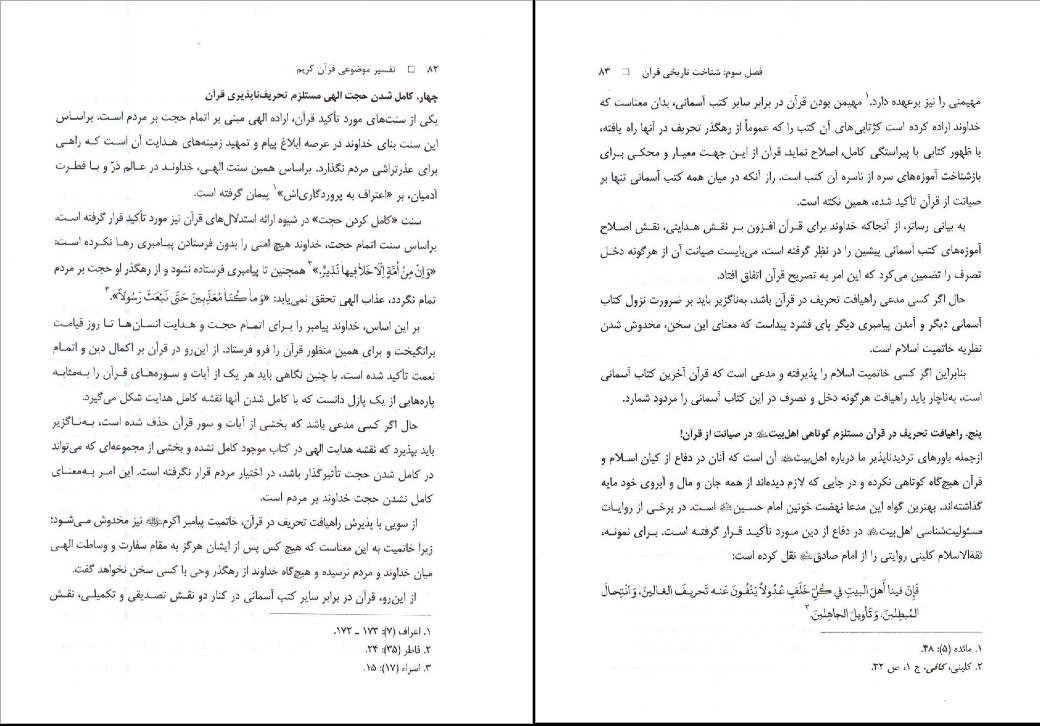 ۸۲ □ تفسیر موضوعی قرآن کریم
چهار. کامل شدن حجت الهی مستلزم تحریف‌ناپذیری قرآن
یکی از سنت‌های مورد تأکید قرآن، اراده الهی مبنی بر اتمام حجت بر مردم است. براساس
این سنت بنای خداوند در عرصه ابلاغ پیام و تمهید زمینه‌های هدایت آن است که راهی
برای عذرتراشی مردم نگذارد. براساس همین سنت الهی، خداوند در عالم ذرّ و با فطرت
آدمیان، بر «اعتراف به پروردگاری‌اش»۱ پیمان گرفته است.
سنت «کامل کردن حجت» در شیوه ارائه استدلال‌های قرآن نیز مورد تأکید قرار گرفته است.
براساس سنت اتمام حجت، خداوند هیچ امتی را بدون فرستادن پیامبری رها نکرده است:
«وَإِنْ مِنْ أُمَّةٍ إِلَّا خَلَا فِيهَا نَذِيرٌ.»۲ همچنین تا پیامبری فرستاده نشود و از رهگذر او حجت بر مردم
تمام نگردد، عذاب الهی تحقق نمی‌یابد: «وَمَا كُنَّا مُعَذِّبِينَ حَتَّى نَبْعَثَ رَسُولاً».۳
بر این اساس، خداوند پیامبر را برای اتمام حجت و هدایت انسان‌ها تا روز قیامت
برانگیخت و برای همین منظور قرآن را فرو فرستاد. از این‌رو در قرآن بر اکمال دین و اتمام
نعمت تأکید شده است. با چنین نگاهی باید هر یک از آیات و سوره‌های قرآن را به‌مثابه
پاره‌هایی از یک پازل دانست که با کامل شدن آنها نقشه کامل هدایت شکل می‌گیرد.
حال اگر کسی مدعی باشد که بخشی از آیات و سور قرآن حذف شده است، به‌ناگزیر
باید بپذیرد که نقشه هدایت الهی در کتاب موجود کامل نشده و بخشی از مجموعه‌ای که می‌تواند
در کامل شدن حجت تأثیرگذار باشد، در اختیار مردم قرار نگرفته است. این امر به‌معنای
کامل نشدن حجت خداوند بر مردم است.
از سویی با پذیرش راهیافت تحریف در قرآن، خاتمیت پیامبر اکرمﷺ نیز مخدوش می‌شود؛
زیرا خاتمیت به این معناست که هیچ کس پس از ایشان هرگز به مقام سفارت و وساطت الهی
میان خداوند و مردم نرسیده و هیچ‌گاه خداوند از رهگذر وحی با کسی سخن نخواهد گفت.
از این‌رو، قرآن در برابر سایر کتب آسمانی در کنار دو نقش تصدیقی و تکمیلی، نقش
۱. اعراف (۷): ۱۷۳ ـ ۱۷۲.
۲. فاطر (۳۵): ۲۴.
۳. اسراء (۱۷): ۱۵.
فصل سوم: شناخت تاریخی قرآن □ ۸۳
مهیمنی را نیز برعهده دارد.۱ مهیمن بودن قرآن در برابر سایر کتب آسمانی، بدان معناست که
خداوند اراده کرده است کژتابی‌های آن کتب را که عموماً از رهگذر تحریف در آنها راه یافته،
با ظهور کتابی با پیراستگی کامل، اصلاح نماید. قرآن از این جهت معیار و محکی برای
بازشناخت آموزه‌های سره از ناسره آن کتب است. راز آنکه در میان همه کتب آسمانی تنها بر
صیانت از قرآن تأکید شده، همین نکته است.
به بیانی رساتر، از آنجاکه خداوند برای قرآن افزون بر نقش هدایتی، نقش اصلاح
آموزه‌های کتب آسمانی پیشین را در نظر گرفته است، می‌بایست صیانت آن از هرگونه دخل
تصرف را تضمین می‌کرد که این امر به تصریح قرآن اتفاق افتاد.
حال اگر کسی مدعی راهیافت تحریف در قرآن باشد، به‌ناگزیر باید بر ضرورت نزول کتاب
آسمانی دیگر و آمدن پیامبری دیگر پای فشرد پیداست که معنای این سخن، مخدوش شدن
نظریه خاتمیت اسلام است.
بنابراین اگر کسی خاتمیت اسلام را پذیرفته و مدعی است که قرآن آخرین کتاب آسمانی
است، به‌ناچار باید راهیافت هرگونه دخل و تصرف در این کتاب آسمانی را مردود شمارد.
پنج. راهیافت تحریف در قرآن مستلزم کوتاهی اهل‌بیت در صیانت از قرآن!
ازجمله باورهای تردیدناپذیر ما درباره اهل‌بیت آن است که آنان در دفاع از کیان اسلام و
قرآن هیچ‌گاه کوتاهی نکرده و در جایی که لازم دیده‌اند از همه جان و مال و آبروی خود مایه
گذاشته‌اند. بهترین گواه این مدعا نهضت خونین امام حسین است. در برخی از روایات
مسئولیت‌شناسی اهل‌بیت در دفاع از دین مورد تأکید قرار گرفته است. برای نمونه،
ثقةالاسلام کلینی روایتی را از امام صادق نقل کرده است:
فَإِنَّ فينا أَهلَ البيتِ في كُلِّ خَلَفٍ عُدُولاً يَنْفُونَ عَنه تَحريفَ الغالينَ، وَ انْتِحالَ
المُبطِلينَ، وَ تَأويلَ الجاهِلينَ.۲
۱. مائده (۵): ۴۸.
۲. کلینی، کافی، ج ۱، ص ۳۲.